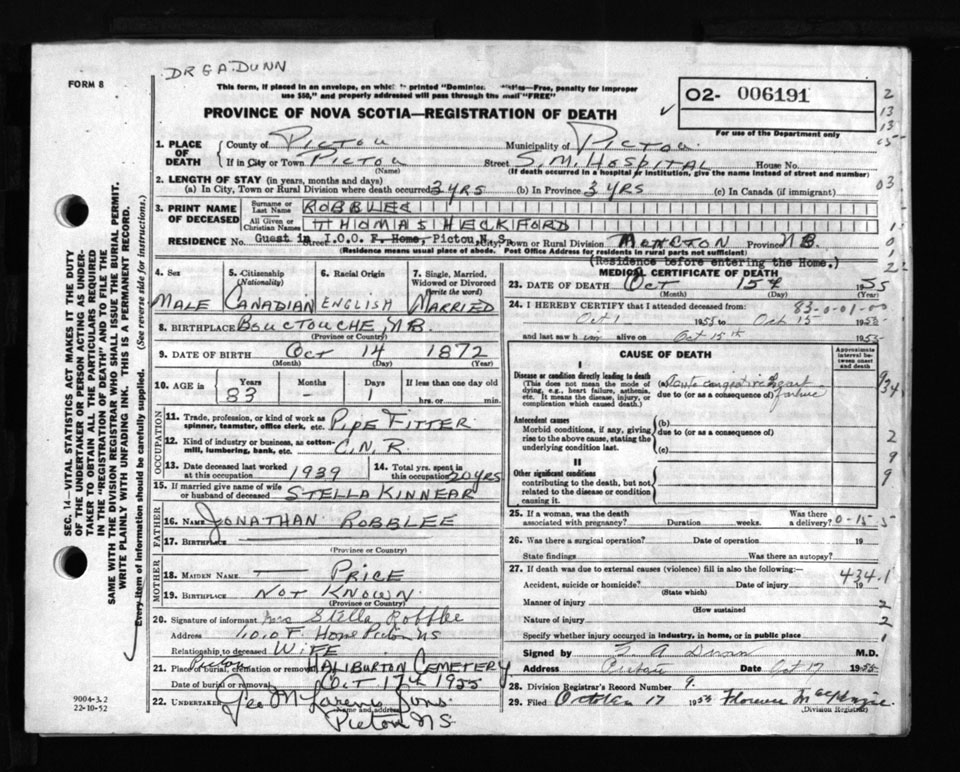 DR G A DUNN
FORM 8
This form, if placed in an envelope, on which printed "Dominion —Free, penalty for improper
use $50," and properly addressed will pass through the mail "FREE"
PROVINCE OF NOVA SCOTIA—REGISTRATION OF DEATH
O2- 006191
For use of the Department only
1. PLACE OF DEATH County of PICTOU Municipality of PICTOU
If in City or Town PICTOU Street S.M. HOSPITAL House No.
(Name) (If death occurred in a hospital or institution, give the name instead of street and number)
2. LENGTH OF STAY (in years, months and days)
(a) In City, Town or Rural Division where death occurred 3 YRS (b) In Province 3 YRS (c) In Canada (if immigrant)
3. PRINT NAME OF DECEASED Surname or Last Name ROBBLEE
All Given or Christian Names THOMAS HECKFORD
RESIDENCE No. Guest in Street I.O.O.F. Home, Pictou, N.S. City, Town or Rural Division MONCTON Province N.B.
(Residence means usual place of abode. Post Office Address for residents in rural parts not sufficient)
(Residence before entering the Home.)
4. Sex MALE
5. Citizenship (Nationality) CANADIAN
6. Racial Origin ENGLISH
7. Single, Married, Widowed or Divorced (write the word) MARRIED
8. BIRTHPLACE BOUCTOUCHE, N.B.
(Province or Country)
9. DATE OF BIRTH OCT 14 1872
(Month) (Day) (Year)
10. AGE in Years 83 Months — Days 1 If less than one day old
hrs. or min.
OCCUPATION
11. Trade, profession, or kind of work as spinner, teamster, office clerk, etc. PIPE FITTER
12. Kind of industry or business, as cotton-mill, lumbering, bank, etc. C.N.R.
13. Date deceased last worked at this occupation 1939
14. Total yrs. spent in this occupation 20 YRS
15. If married give name of wife or husband of deceased STELLA KINNEAR
FATHER
16. NAME JONATHAN ROBBLEE
17. BIRTHPLACE —
(Province or Country)
MOTHER
18. MAIDEN NAME — PRICE
19. BIRTHPLACE NOT KNOWN
(Province or Country)
20. Signature of informant Mrs Stella Robblee
Address I.O.O.F. Home Pictou NS
Relationship to deceased WIFE
21. Place of burial, cremation or removal Pictou HALIBURTON CEMETERY
Date of burial or removal OCT 17th 1955
22. UNDERTAKER Geo McLaren & Sons
Name and address
Pictou NS.
MEDICAL CERTIFICATE OF DEATH
23. DATE OF DEATH OCT 15th 1955
(Month) (Day) (Year)
24. I HEREBY CERTIFY that I attended deceased from: 83-0-01-00
Oct 1 1955 to Oct 15 1955
and last saw h im alive on Oct 15th 1955
CAUSE OF DEATH
Approximate interval between onset and death
I
Disease or condition directly leading to death
(This does not mean the mode of dying, e.g., heart failure, asthenia, etc. It means the disease, injury, or complication which caused death.)
(a) Acute congestive heart failure
due to (or as a consequence of)
Antecedent causes
Morbid conditions, if any, giving rise to the above cause, stating the underlying condition last.
(b)
due to (or as a consequence of)
(c)
II
Other significant conditions
contributing to the death, but not related to the disease or condition causing it.
25. If a woman, was the death associated with pregnancy? Duration weeks. Was there a delivery? 0-15-5
26. Was there a surgical operation? Date of operation 19
State findings Was there an autopsy?
27. If death was due to external causes (violence) fill in also the following:— 434.1
Accident, suicide or homicide? Date of injury 19
(State which)
Manner of injury
(How sustained)
Nature of injury
Specify whether injury occurred in industry, in home, or in public place
Signed by G A Dunn M.D.
Address Pictou Date Oct 17 1955
28. Division Registrar's Record Number 9.
29. Filed October 17 1955 Florence McKenzie
(Division Registrar)
SEC. 14—VITAL STATISTICS ACT MAKES IT THE DUTY
OF THE UNDERTAKER OR PERSON ACTING AS UNDER-
TAKER TO OBTAIN ALL THE PARTICULARS REQUIRED
IN THE "REGISTRATION OF DEATH" AND TO FILE THE
SAME WITH THE DIVISION REGISTRAR WHO SHALL ISSUE THE BURIAL PERMIT.
WRITE PLAINLY WITH UNFADING INK. THIS IS A PERMANENT RECORD.
Every item of information should be carefully supplied. (See reverse side for instructions.)
9004-3.2
22-10-52
2
13
13
05
03
1
0
1
2
9
34
2
9
9
2
2
1